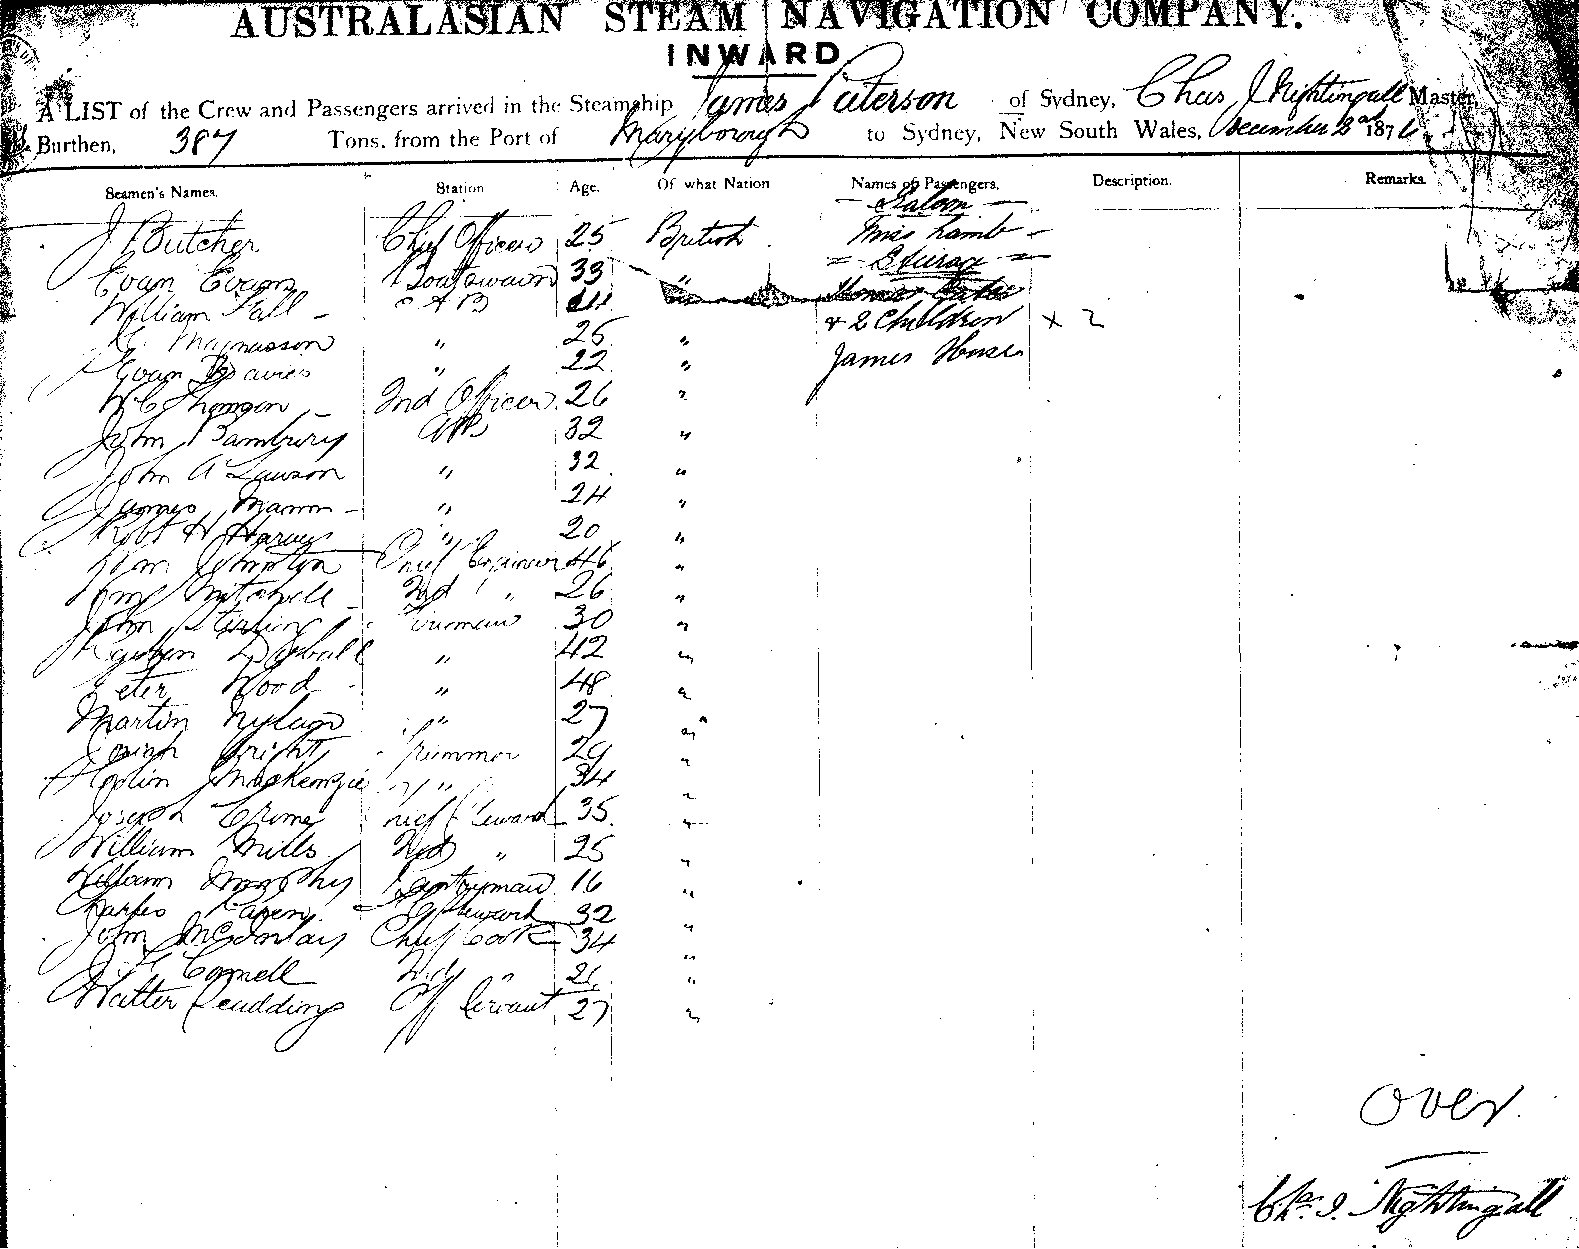 AUSTRALASIAN STEAM NAVIGATION COMPANY.
INWARD
A LIST of the Crew and Passengers arrived in the Steamship James Paterson of Sydney, Chas J Nightingall Master,
Burthen, 387 Tons, from the Port of Maryborough to Sydney, New South Wales, December 2nd 1876
Seamen's Names. Station Age. Of what Nation Names of Passengers. Description. Remarks.
Saloon
J Butcher Chief Officer 25 British Miss Lamb
Steerage
Evan Evans Boatswain 33 "
William Hall AB 44
& 2 Children x 2
Magnusson " 25 "
James
Evan Davies " 22 "
W C Thomson 2nd Officer 26 "
John Bambury AB 32 "
John A Lawson " 32 "
James Mann " 24 "
Robt H Harvey " 20 "
Wm Johnston Chief Engineer 46 "
Wm Mitchell 2nd " 26 "
John Stirling Fireman 30 "
" 42 "
Peter Wood " 48 "
Martin " 27 "
Wright Trimmer 29 "
Mackenzie " 34 "
Joseph Crome Chief Steward 35 "
William Mills 2nd " 25 "
William Murphy Pantryman 16 "
Charles Steward 32 "
John McKinlay Chief Cook 34 "
Connell 2nd " "
Walter Off Servant 27 "
Over
Chas. J. Nightingall